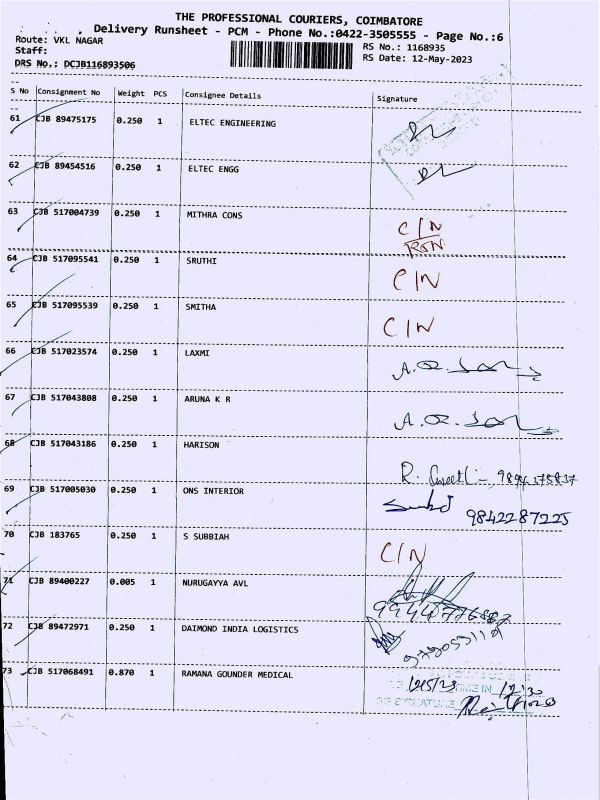 THE PROFESSIONAL COURIERS, COIMBATORE
Delivery Runsheet - PCM - Phone No.:0422-3505555 - Page No.:6
Route: VKL NAGAR RS No.: 1168935
Staff: RS Date: 12-May-2023
DRS No.: DCJB116893506
S No Consignment No Weight PCS Consignee Details Signature
61 CJB 89475175 0.250 1 ELTEC ENGINEERING
62 CJB 89454516 0.250 1 ELTEC ENGG
63 CJB 517004739 0.250 1 MITHRA CONS C/N
64 CJB 517095541 0.250 1 SRUTHI C/N
65 CJB 517095539 0.250 1 SMITHA C/N
66 CJB 517023574 0.250 1 LAXMI
67 CJB 517043808 0.250 1 ARUNA K R
68 CJB 517043186 0.250 1 HARISON
69 CJB 517005030 0.250 1 ONS INTERIOR 9842287225
70 CJB 183765 0.250 1 S SUBBIAH C/N
71 CJB 89400227 0.005 1 NURUGAYYA AVL
72 CJB 89472971 0.250 1 DAIMOND INDIA LOGISTICS
73 CJB 517068491 0.870 1 RAMANA GOUNDER MEDICAL